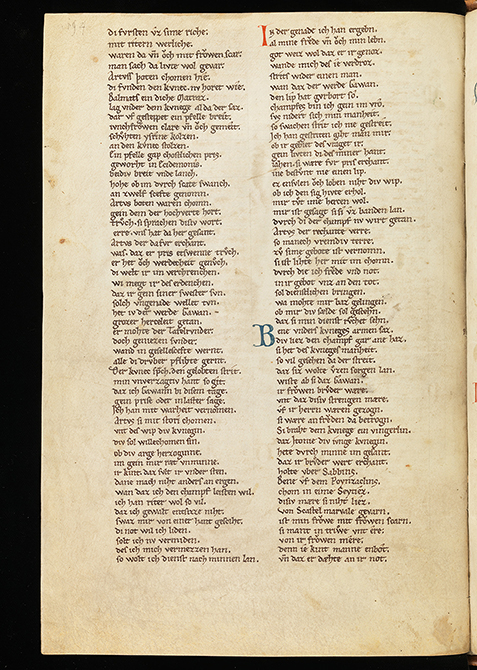 di fvrsten vz sime riche;
mit ritern werliche.
waren da vñ och mit frowen scar.
man sach da livte wol gevar.
Artvs poten chomen hie.
di fvnden den kvnec nv horet wie.
Palmats ein diche Matraz.
lag vnder dem kvnege al da der saz.
dar vf gesteppet ein pfelle breit.
ivnchfrowen clare vñ och gemeit.
schvhten ysrine kolzen.
an den kvnec stolzen.
Ein pfelle gap chostlichen pris.
geworht in Ecidemonis.
beidiv breit vnde lanch.
hohe ob im dvrch scate swanch.
an zwelf scefte genomn.
Artvs boten waren chomn.
gein dem der hochverte hort.
trvch. si sprachen disiv wort.
erre. vns hat da her gesant.
Artvs der da fvr erchant.
was. daz er pris etswenne trvch.
er het och werdecheit genvch.
di welt ir im verchrenchen.
wi mege ir des erdenchen.
daz ir gein siner swester svn.
solch vngenade wellet tvn.
het iv der werde Gawan.
grozer herceleit getan.
er mohte der Tafelrvnder.
doch geniezen svnder.
wand in gesellescefte wernt.
alle di drvber pflihte gernt.
Der kvnec sp̄ch. den gelobten strit.
min vnverzagtiv hant so git.
daz ich Gawann bi disem tage.
gein prise oder in laster sage.
Ich han mit warheit vernomen.
Artvs si mit storie chomen.
vnt des wip div kvnegin.
div sol willechomen sin.
ob div arge herzoginne.
im gein mir rat vnminne.
ir kint. daz svlt ir vnder sten.
dane mach niht anders an ergen.
wan daz ich den champf leisten wil.
ich han riter wol so vil.
daz ich gewalt entsitze niht.
swaz mir von einer hant geschiht.
di not wil ich liden.
solt ich nv vermiden.
des ich mich vermezzen han.
so wolt ich dienst nach minnen lan.
In der genade ich han ergebn.
al mine frevde vñ och min lebn.
got weiz wol daz er ir genoz.
wande mich des ie verdroz.
strits wider einen man.
wan daz der werde Gawan.
den lip hat gvrbort so.
champfes bin ich gein im vro.
svs nidert sich min manheit.
so swachen strit ich nie gestreit.
Ich han gestriten gibt man mir.
ob ir gebiet des vraget ir.
gein livten di des miner hant.
iahen. si ware fvr pris erchant.
ine bestvnt nie einen lip.
ez ensvlen och loben niht div wip.
ob ich den sig hivte erhol.
mir tvt ime hercen wol.
mir ist gesagt si si vz banden lan.
dvrch di der champf nv wirt getan.
Artvs der rechante verre.
so manech vremdiv terre.
zv sime gebote ist vernomn.
si ist lihte her mit im chomn.
dvrch die ich frevde vnd not.
in ir gebot vnz an den tot.
sol dienstlichen bringen.
wa mohte mir baz gelingen.
ob mir div sælde sol geschehn.
daz si min dienst rvchet sehn.
Bene vnders kvneges armen saz.
div liez den champf gar ane haz.
si het des kvneges manheit.
so vil gesehen da der streit.
daz siz wolte vzen sorgen lan.
wiste ab si daz Gawan.
ir frowen brvder ware.
vnt daz disiv strengen mære.
vf ir herrn waren gezogn.
si ware an frevden da betrogn.
Si braht dem kvnege ein vingerlin.
daz Itonie div ivnge kvnegin.
hete dvrch minne im gesant.
daz ir brvder wert erchant.
holte vber Sabbins.
Bene vf dem Poynzaclins.
chom in eine Seytiez.
disiv mære si niht liez.
von Scastel marvale gevarn.
ist min frowe mit frowen scarn.
si mante in triwe vnt ere.
von ir frowen mere.
denn ie kint manne enbot.
vñ daz er dæhte an ir not.